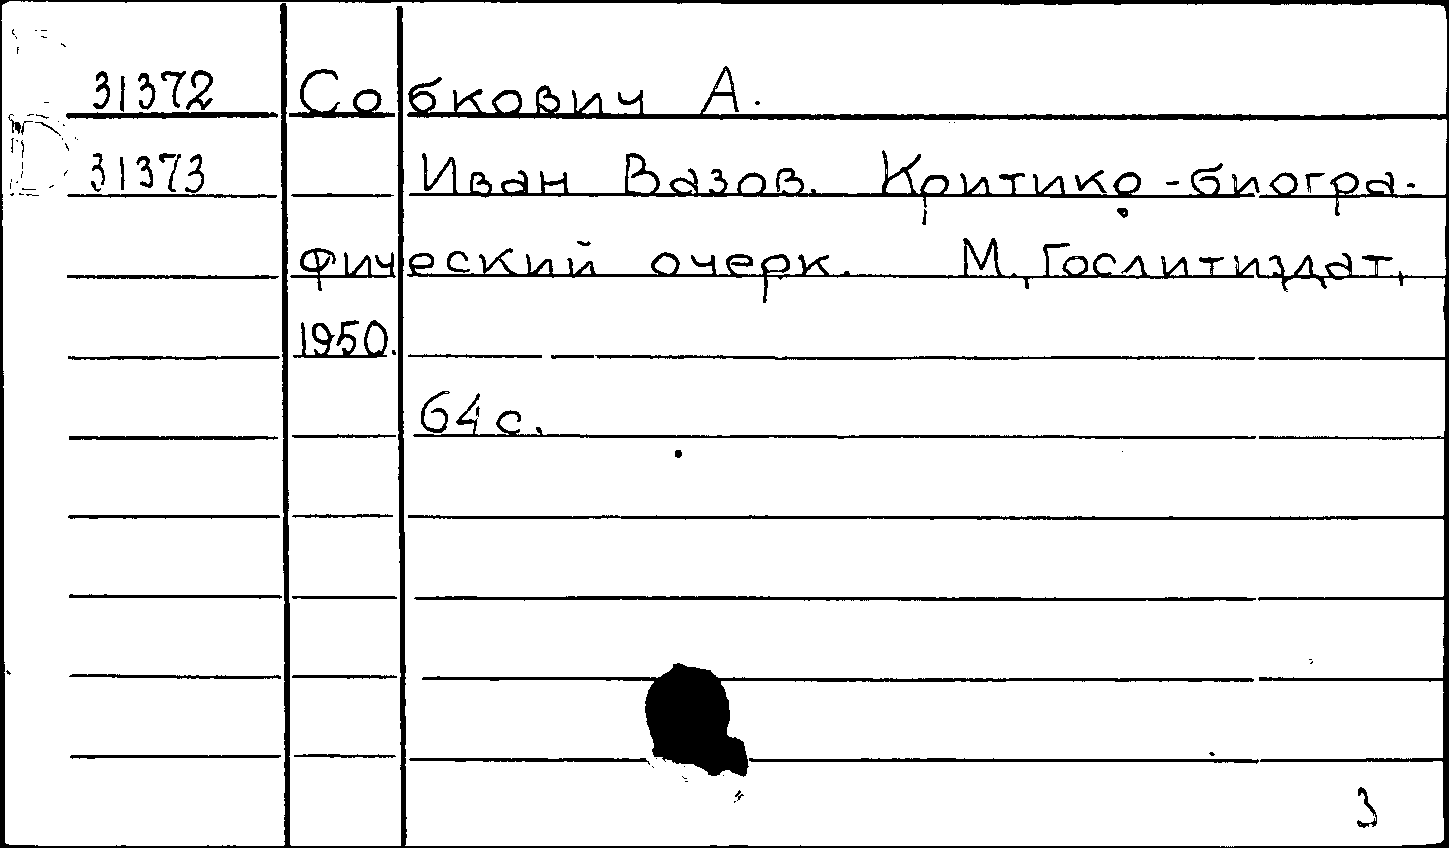 31372 Собкович А.
31373 Иван Вазов. Критико-биогра-
фический очерк. М., Гослитиздат,
1950.
64 с.
3